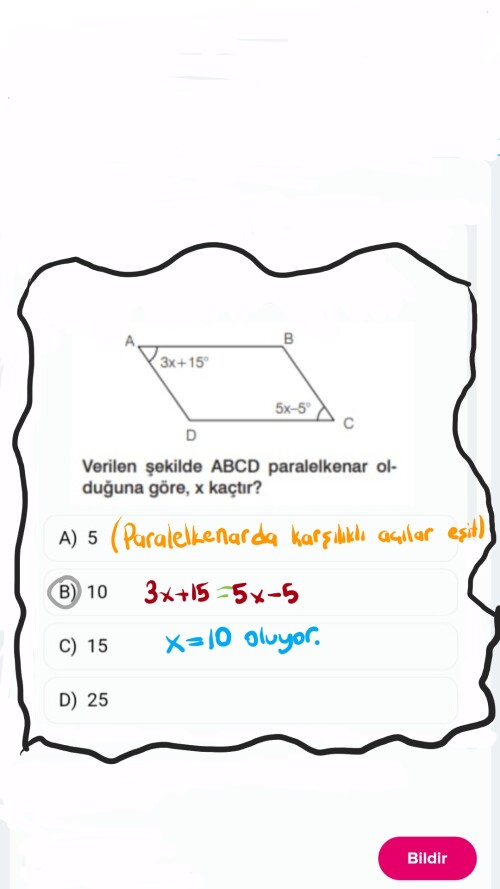 A
B
3x+15°
5x–5°
C
D
Verilen şekilde ABCD paralelkenar ol-
duğuna göre, x kaçtır?
A) 5 (Paralelkenarda karşılıklı açılar eşit)
B) 10 3x+15=5x-5
C) 15 x=10 oluyor.
D) 25
Bildir